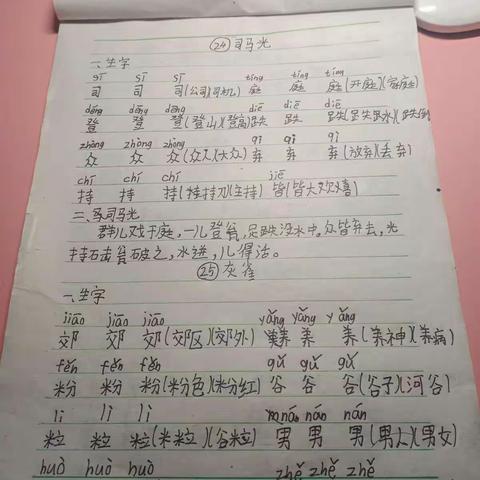 ㉔司马光
一、生字
sī sī sī tíng tíng tíng
司 司 司(公司)(司机) 庭 庭 庭(开庭)(家庭)
dēng dēng dēng diē diē diē
登 登 登(登山)(登高) 跌 跌 跌(跌水)(跌倒)
zhòng zhòng zhòng qì qì qì
众 众 众(众人)(大众) 弃 弃 弃(放弃)(丢弃)
chí chí chí jiē
持 持 持(持刀)(主持) 皆(皆大欢喜)
二、写司马光
群儿戏于庭,一儿登瓮,足跌没水中。众皆弃去,光
持石击瓮破之,水迸,儿得活。
㉕灰雀
一、生字
jiāo jiāo jiāo yǎng yǎng yǎng
郊 郊 郊(郊区)(郊外) 养 养 养(养神)(养病)
fěn fěn fěn gǔ gǔ gǔ
粉 粉 粉(粉色)(粉红) 谷 谷 谷(谷子)(河谷)
lì lì lì nán nán nán
粒 粒 粒(米粒)(谷粒) 男 男 男(男人)(男女)
huò huò huò zhě zhě zhě